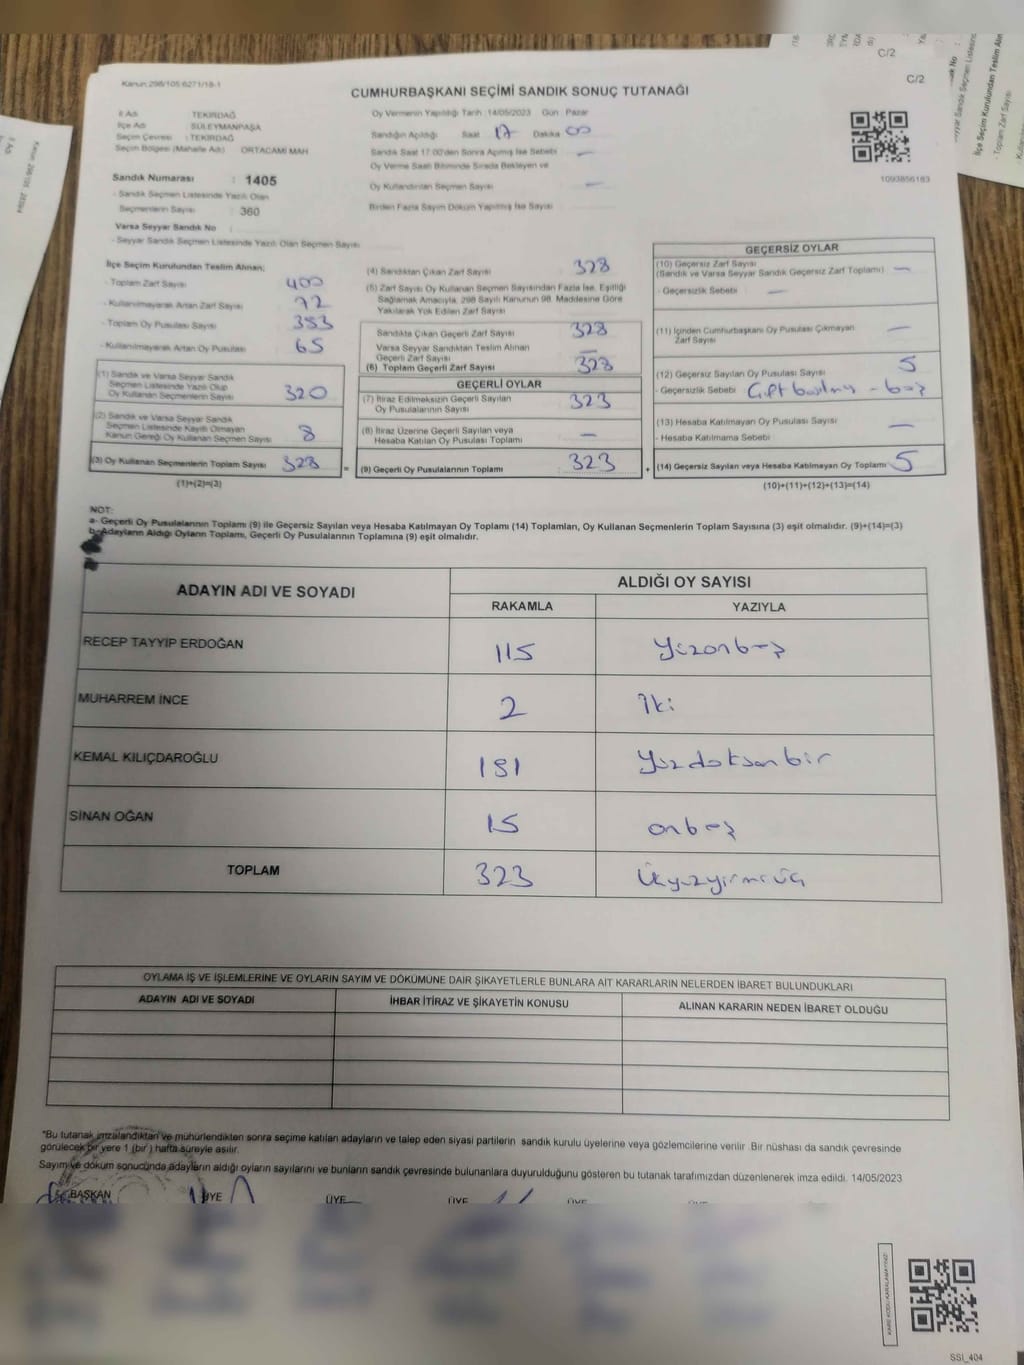 C/2
C/2
Kanun:298/105 6271/18-1
CUMHURBAŞKANI SEÇİMİ SANDIK SONUÇ TUTANAĞI
İl Adı : TEKİRDAĞ
İlçe Adı : SÜLEYMANPAŞA
Seçim Çevresi : TEKİRDAĞ
Seçim Bölgesi (Mahalle Adı) ORTACAMİ MAH
Oy Vermenin Yapıldığı Tarih :14/05/2023 Gün Pazar
Sandığın Açıldığı Saat 17 Dakika 00
Sandık Saat 17.00'den Sonra Açılmış İse Sebebi —
Oy Verme Saati Bitiminde Sırada Bekleyen ve
Oy Kullandırılan Seçmen Sayısı —
Birden Fazla Sayım Döküm Yapılmış İse Sayısı
1093856183
Sandık Numarası : 1405
- Sandık Seçmen Listesinde Yazılı Olan
Seçmenlerin Sayısı : 360
Varsa Seyyar Sandık No :
- Seyyar Sandık Seçmen Listesinde Yazılı Olan Seçmen Sayısı
İlçe Seçim Kurulundan Teslim Alınan;
- Toplam Zarf Sayısı 400
- Kullanılmayarak Artan Zarf Sayısı 72
- Toplam Oy Pusulası Sayısı
- Kullanılmayarak Artan Oy Pusulası 65
(1) Sandık ve Varsa Seyyar Sandık
Seçmen Listesinde Yazılı Olup
Oy Kullanan Seçmenlerin Sayısı 320
(2) Sandık ve Varsa Seyyar Sandık
Seçmen Listesinde Kayıtlı Olmayan
Kanun Gereği Oy Kullanan Seçmen Sayısı 8
(3) Oy Kullanan Seçmenlerin Toplam Sayısı 328
(1)+(2)=(3)
(4) Sandıktan Çıkan Zarf Sayısı 328
(5) Zarf Sayısı Oy Kullanan Seçmen Sayısından Fazla İse, Eşitliği
Sağlamak Amacıyla, 298 Sayılı Kanunun 98. Maddesine Göre
Yakılarak Yok Edilen Zarf Sayısı
Sandıkta Çıkan Geçerli Zarf Sayısı 328
Varsa Seyyar Sandıktan Teslim Alınan
Geçerli Zarf Sayısı —
(6) Toplam Geçerli Zarf Sayısı 328
GEÇERLİ OYLAR
(7) İtiraz Edilmeksizin Geçerli Sayılan
Oy Pusulalarının Sayısı 323
(8) İtiraz Üzerine Geçerli Sayılan veya
Hesaba Katılan Oy Pusulası Toplamı —
= (9) Geçerli Oy Pusulalarının Toplamı 323
GEÇERSİZ OYLAR
(10) Geçersiz Zarf Sayısı
(Sandık ve Varsa Seyyar Sandık Geçersiz Zarf Toplamı) —
- Geçersizlik Sebebi —
(11) İçinden Cumhurbaşkanı Oy Pusulası Çıkmayan
Zarf Sayısı —
(12) Geçersiz Sayılan Oy Pusulası Sayısı 5
- Geçersizlik Sebebi Çift - boş
(13) Hesaba Katılmayan Oy Pusulası Sayısı —
- Hesaba Katılmama Sebebi
+ (14) Geçersiz Sayılan veya Hesaba Katılmayan Oy Toplamı 5
(10)+(11)+(12)+(13)=(14)
NOT:
a- Geçerli Oy Pusulalarının Toplamı (9) ile Geçersiz Sayılan veya Hesaba Katılmayan Oy Toplamı (14) Toplamları, Oy Kullanan Seçmenlerin Toplam Sayısına (3) eşit olmalıdır. (9)+(14)=(3)
b- Adayların Aldığı Oyların Toplamı, Geçerli Oy Pusulalarının Toplamına (9) eşit olmalıdır.
ADAYIN ADI VE SOYADI
ALDIĞI OY SAYISI
RAKAMLA YAZIYLA
RECEP TAYYİP ERDOĞAN 115 Yüzonbeş
MUHARREM İNCE 2 İki
KEMAL KILIÇDAROĞLU 191 Yüzdoksanbir
SİNAN OĞAN 15 onbeş
TOPLAM 323 Üçyüzyirmiüç
OYLAMA İŞ VE İŞLEMLERİNE VE OYLARIN SAYIM VE DÖKÜMÜNE DAİR ŞİKAYETLERLE BUNLARA AİT KARARLARIN NELERDEN İBARET BULUNDUKLARI
ADAYIN ADI VE SOYADI İHBAR İTİRAZ VE ŞİKAYETİN KONUSU ALINAN KARARIN NEDEN İBARET OLDUĞU
"Bu tutanak imzalandıktan ve mühürlendikten sonra seçime katılan adayların ve talep eden siyasi partilerin sandık kurulu üyelerine veya gözlemcilerine verilir. Bir nüshası da sandık çevresinde
görülecek bir yere 1 (bir) hafta süreyle asılır.
Sayım ve döküm sonucunda adayların aldığı oyların sayılarını ve bunların sandık çevresinde bulunanlara duyurulduğunu gösteren bu tutanak tarafımızdan düzenlenerek imza edildi. 14/05/2023
BAŞKAN ÜYE ÜYE ÜYE ÜYE ÜYE
SSI_404